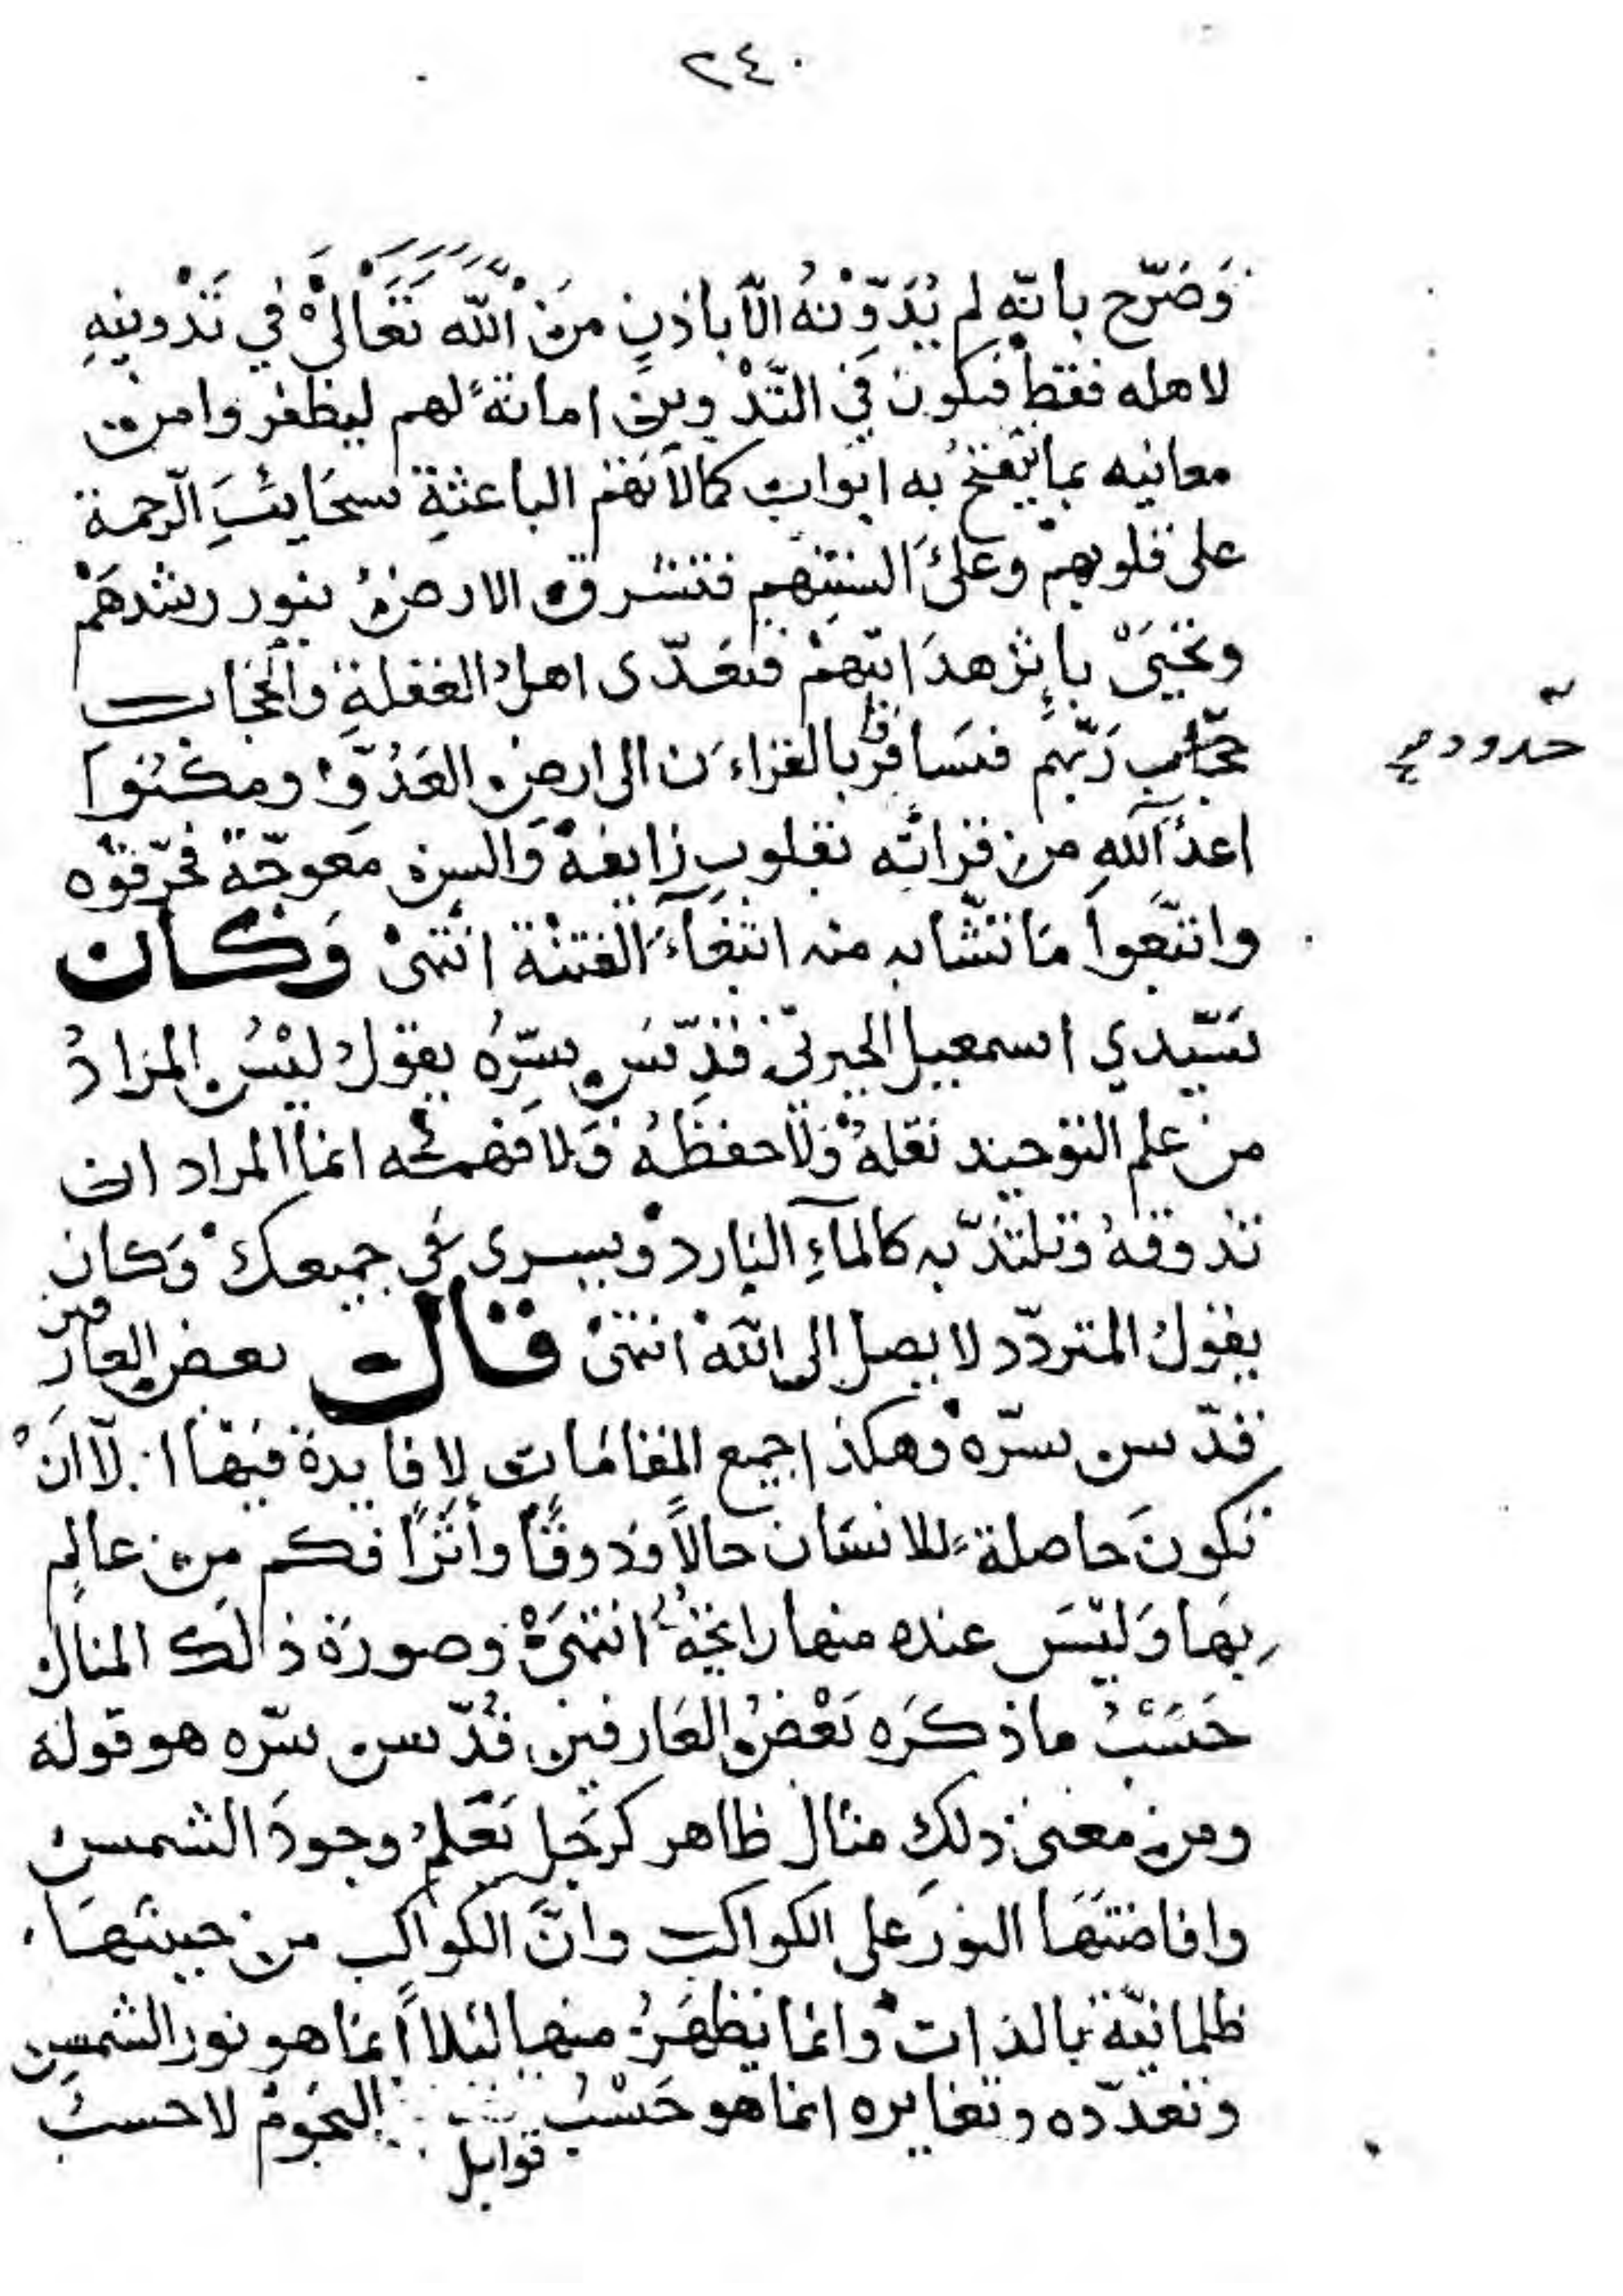 ٢٤٠
وَصَرّح بانّه لم يُدَوِّنْهُ الّا باذنٍ منَ الله تَعَالىْ في تَدْوينِهِ
لاهله فقط فيكون في التَّدْوين امانةً لهم ليظفروا من
معانيه بما يتفتحُ به ابواب كمالاتهم الباعثةِ سحَايبَ الرحمة
على قلوبهمْ وعلىَ السنتِهم فتشرق الارضُ بنور رشدهَمْ
وتحْيَىْ باِثر هدَايتهمْ فتعَدّى اهلُ الغفلةِ والحجاب
حدود
بجَانبِ رَبّهم فسَافرُوا بالقراءَن الى ارضِ العَدُوِّ ومكّنُوا
اعدآ اللهِ من قرائته بقلوبٍ زايغة وَالسن معوجّة فحرّفوُه
واتبّعوا مَا تشَابه منه ابتغآءَ الفتنْة انتهىْ وَكان
سَيّدي اسمعيل الجبرتيّ قدِّسَ سِرّهُ يقولُ ليْسَ المرَادُ
من علم التوحيد نقلهُ وَلا حفظهُ وَلا فهمه انما المراد ان
تذوقهُ وتلتذّ به كالمآءِ البارد ويسرى في جميعك وَكان
يقولُ المتردّد لا يصل الى الله انتهىْ قال بعض العارفين
قدّس سرّه وهكذا جميع المقامَات لا فايدة فيَها الّا انَْ
تكونَ حاصلة للانسَان حالاً وذوقًا وأثرًا فكم من عالمٍ
بهَا وَليْسَ عنده منها رايحةٌ انتهىَْ وصورَة ذالك المثال
حَسَبُْ ما ذكَره بَعْضُ العَارفين قُدّس سرّه هو قوله
ومن معنى ذلك مثال ظاهر كرجَل يَعْلمُ وجودَ الشمس
وافاضتَهَا النورَ على الكواكب وانَّ الكواكب من حيثهَا
ظلمانيّة بالذات وانما يَظهَرُ منها ليْلاً انما هو نور الشمس
وتعدّده وتغايره انما هو حَسْبُ قوابل النجومْ لا حسبَ